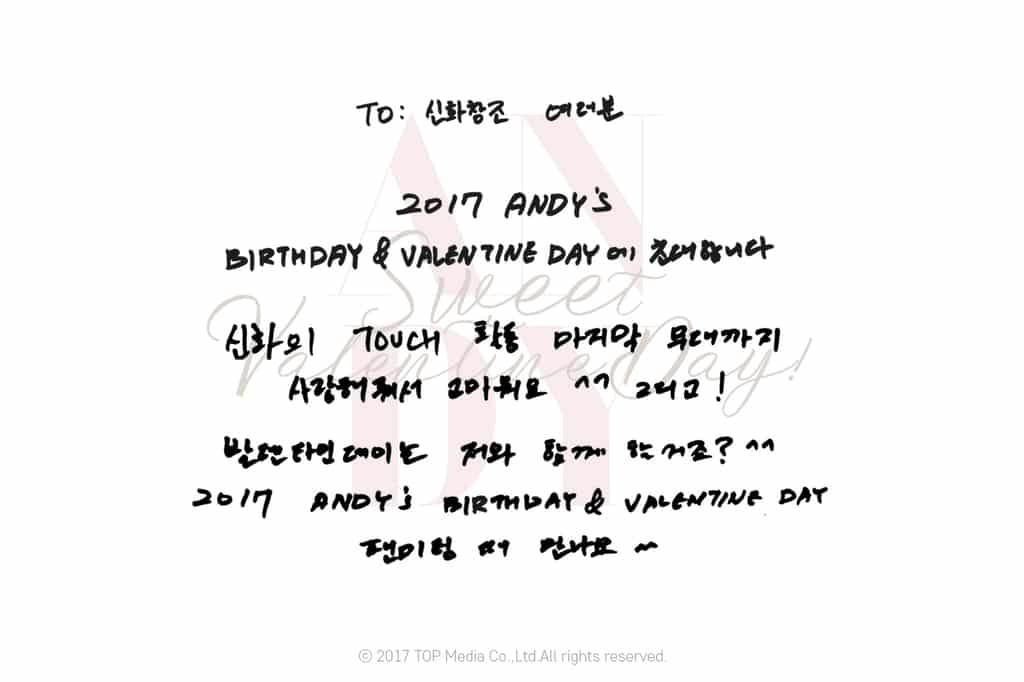 TO: 신화창조 여러분
2017 ANDY's
BIRTHDAY & VALENTINE DAY에 초대합니다
신화의 TOUCH 활동 마지막 무대까지
사랑해줘서 고마워요 ^^ 그리고!
발렌타인데이는 저와 함께 하는거죠? ^^
2017 ANDY's BIRTHDAY & VALENTINE DAY
팬미팅 때 만나요 ~
ANDY
Sweet
Valentine Day!
ⓒ 2017 TOP Media Co.,Ltd.All rights reserved.